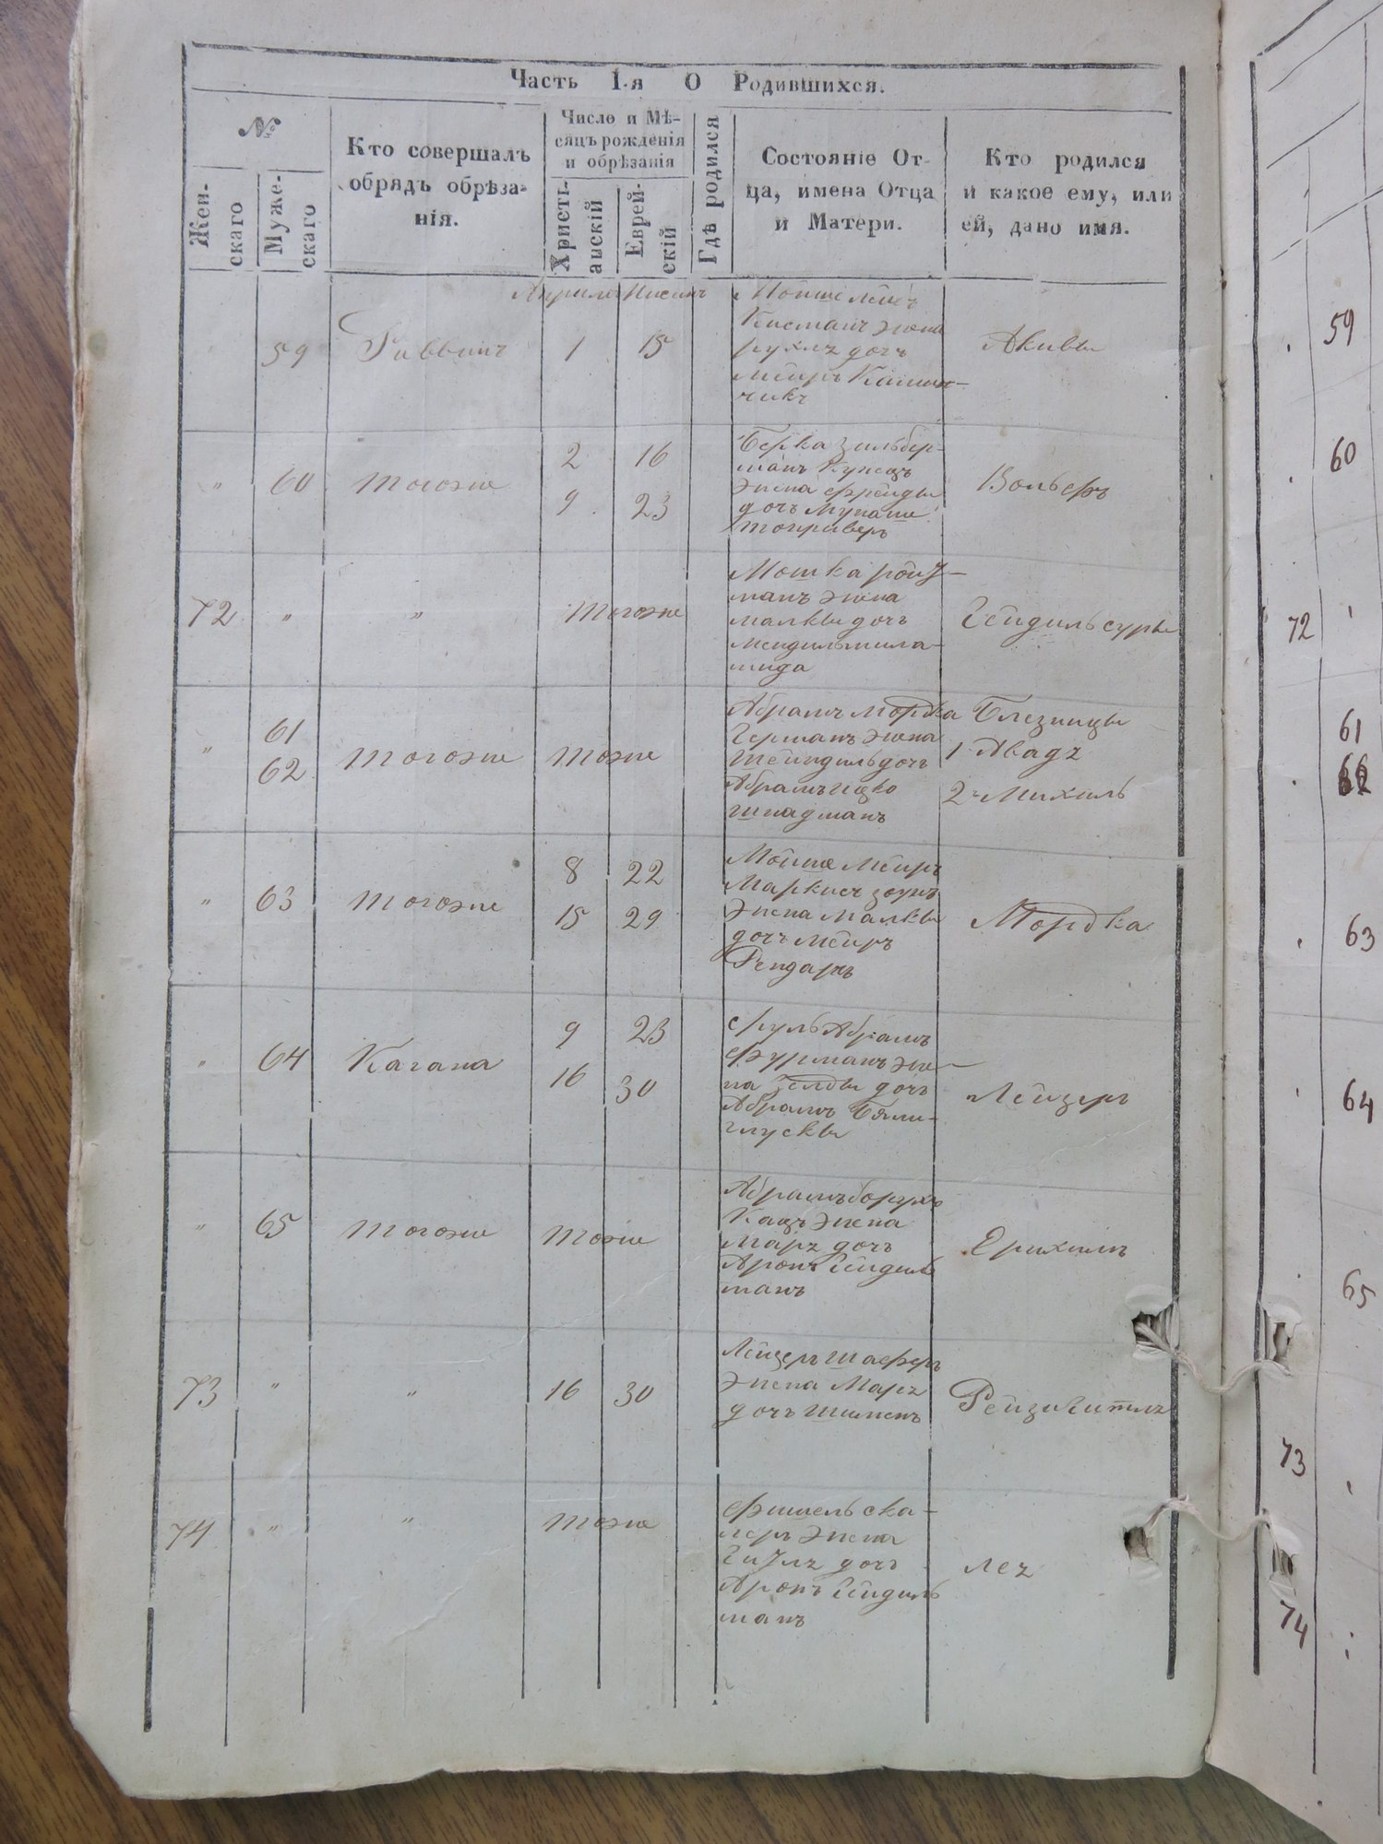 Часть I-я О Родившихся.
№
Жен-
скаго
Муже-
скаго
Кто совершалъ
обрядъ обрѣза-
нія.
Число и Мѣ-
сяцъ рожденія
и обрѣзанія
Христі-
анскій
Еврей-
скій
Гдѣ родился
Состояніе От-
ца, имена Отца
и Матери.
Кто родился
и какое ему, или
ей, дано имя.
Апрель Нисанъ
59
1 15
Мойше
жена
рухля дочь
Мейръ
чикъ
Акива
" 60 тогоже
2 16
9 23
Берка Зильбер-
манъ Купецъ
жена Фрейда
дочь
Вольфъ
72 " "
тогоже
Мошка Ройз-
манъ жена
Малка дочь
мендель мила-
меда
Гейдильсура
"
61
62
тогоже
тоже
Абрамъ Мордка
Германъ жена
Шейндиль дочь
Абрамъ Ицко
Шпадманъ
Близнецы
1 Авадя
2. Михиль
" 63 тогоже
8 22
15 29
Мойше Мейръ
жена Малка
дочь Мейръ
Гендаръ
Мордка
" 64 Кагана
9 23
16 30
Сруль Абрамъ
Фурманъ же-
на Зелда дочь
Абрамъ
Лейзеръ
" 65 тогоже
тоже
Абрамъ Борухъ
Кацъ жена
Маря дочь
Аронъ Гейдиль
манъ
Ерихимъ
73 " "
16 30
Лейзеръ Шаферъ
жена Маря
дочь Шимонъ
Рейзя Гитля
74 " "
тоже
Фишель Ска-
леръ жена
Гитля дочь
Аронъ Гейдиль
манъ
Лея
59
60
72
61
62
63
64
65
73
74